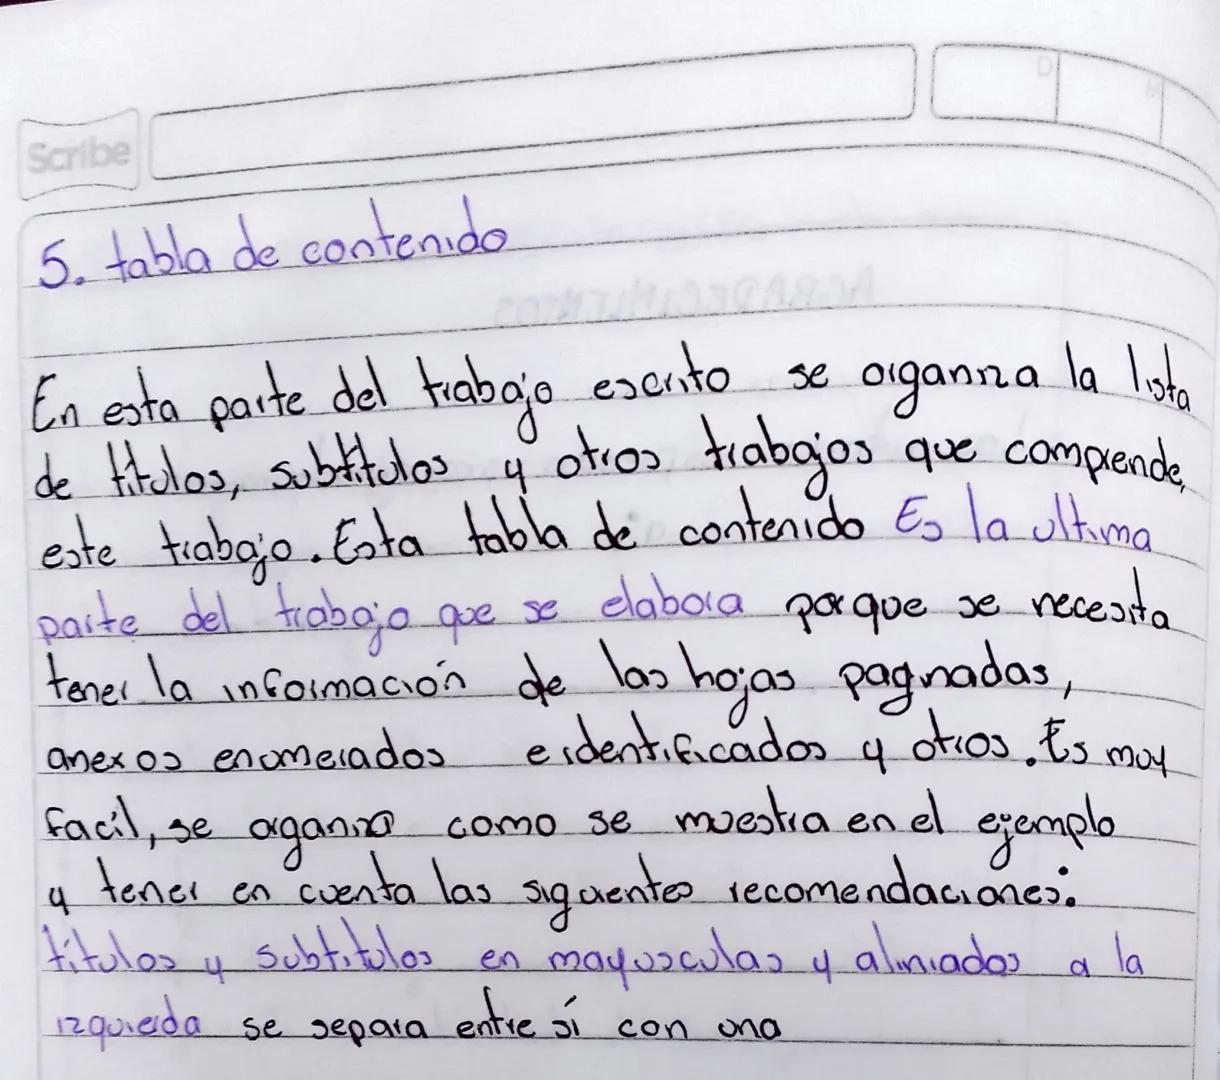 Scribe
D
5. tabla de contenido
En esta parte del trabajo escrito se organiza la lista
de titulos, subtitulos y otros trabajos que comprende,
este trabajo. Esta tabla de contenido Es la ultima
parte del trabajo que se elabora porque se necesita
tener la información de las hojas paginadas,
anexos enumerados e identificados y otros. Es muy
facil, se organiza como se muestra en el ejemplo
y tener en cuenta las siguientes recomendaciones:
títulos y subtitulos en mayusculas y aliniados a la
izquieda se separa entre sí con una